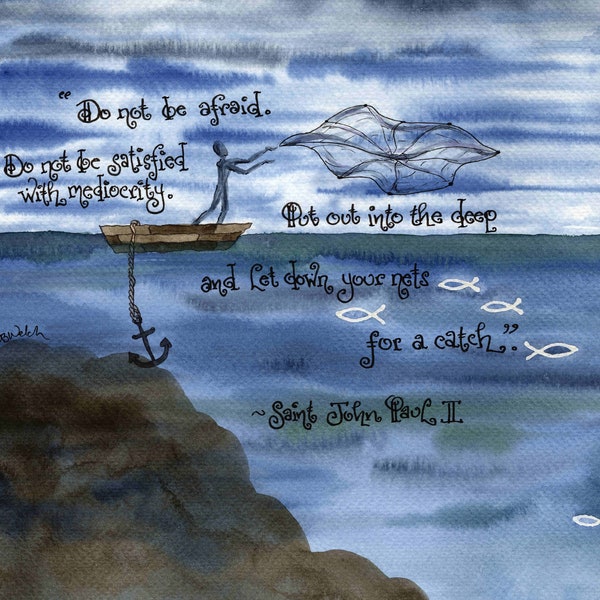 "Do not be afraid.
Do not be satisfied
with mediocrity.
Put out into the deep
and let down your nets
for a catch".
~Saint John Paul II
BWelch